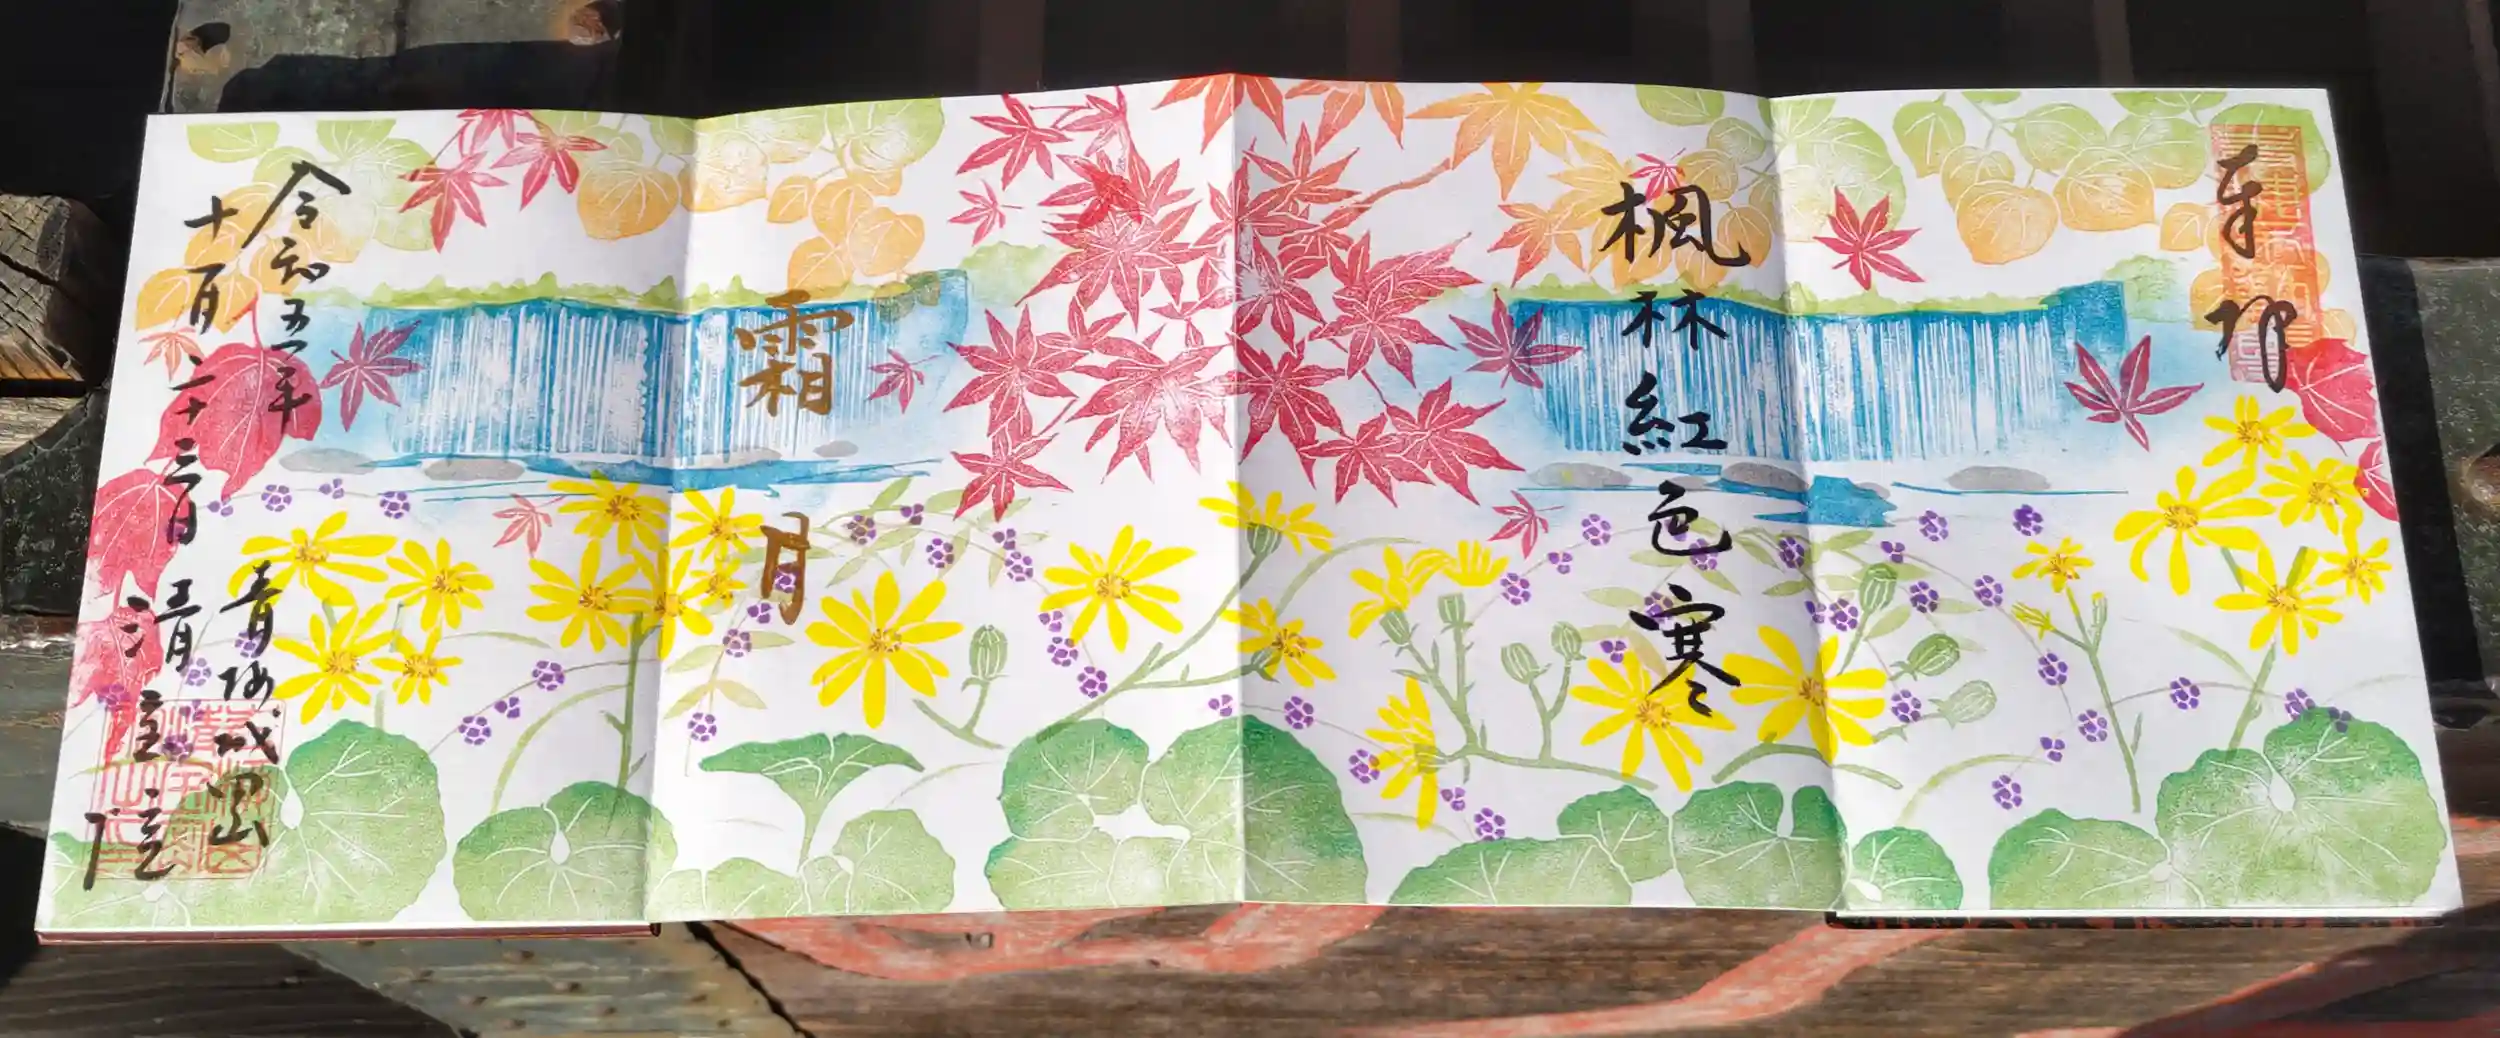 奉拝
楓林紅色寒
霜月
令和五年
十一月二十三日
青梅成田山
清宝院